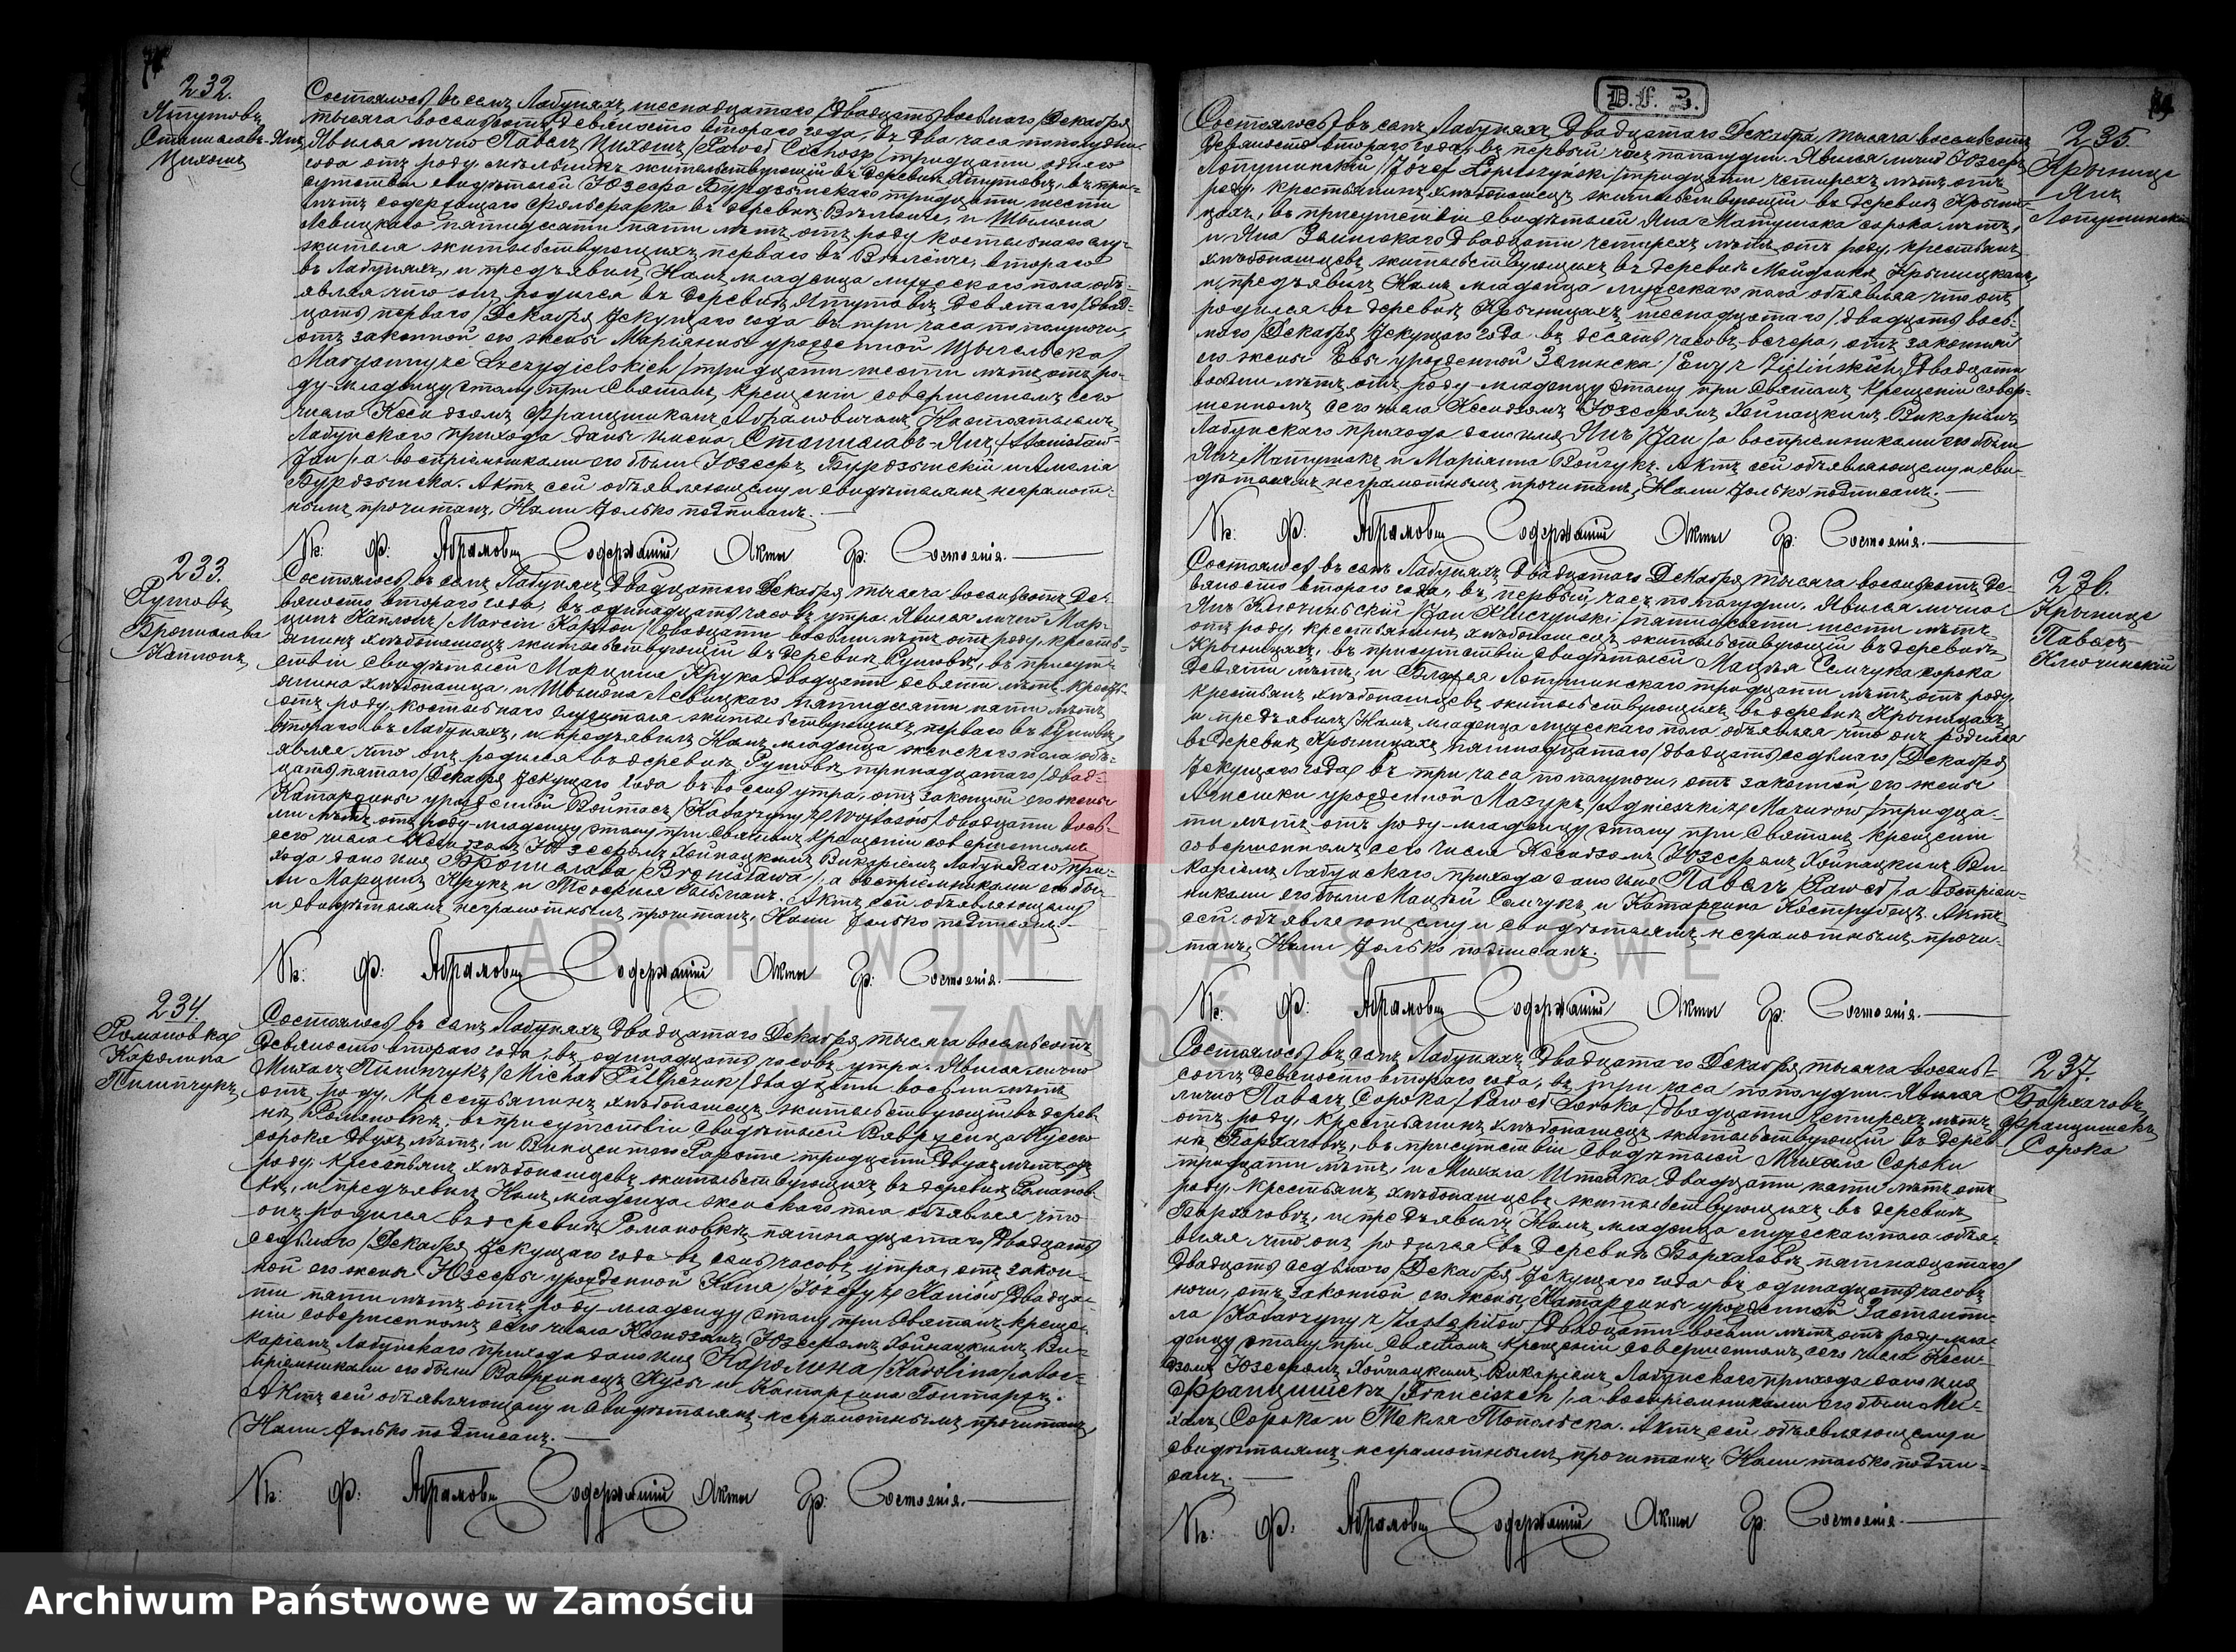 232.
Ятутовъ
Станиславъ-Янъ
Цихошъ
Состоялось въ селѣ Лабуняхъ шеснадцатаго /двадцать восьмаго/ Декабря
тысяча восемьсотъ девяносто втораго года, въ два часа пополудни.
Явился лично Павелъ Цихошъ /Paweł Cichosz/ тридцати одного
года отъ роду, мѣльникъ жительствующій въ деревни Ятутовѣ, въ при-
сутствіи свидѣтелей Юзефа Бурдзинскаго тридцати шести
лѣтъ содержащаго фольварка въ деревни, и Шимона
Левицкаго пятидесяти пяти лѣтъ отъ роду костельнаго слу-
жителя жительствующихъ перваго въ, втораго
въ Лабуняхъ, и предъявилъ Намъ младенца мужескаго пола объ-
являя что онъ родился въ деревни Ятутовѣ девятаго /двад-
цать перваго/ Декабря текущаго года въ три часа пополуночи,
отъ законной его жены Маріанны урожденной
Maryanny ze Szczygielskich /тридцати шести лѣтъ отъ ро-
ду-младенцу этому при Святомъ Крещеніи совершенномъ сего
числа Ксендзомъ Францишкомъ Абрамовичемъ Настоятелемъ
Лабунскаго прихода даны имена Станиславъ-Янъ /Stanisław-
Jan/, а воспріемниками его были Юзефъ Бурдзинскій и Амелія
Бурдзинска. Актъ сей объявляющему и свидѣтелямъ неграмот-
нымъ прочитанъ, Нами только подписанъ.
Кс: Ф: Абрамовичъ Содержащій Акты Гр: Состоянія.
233.
Рутовъ
Бронислава
Каплонъ
Состоялось въ селѣ Лабуняхъ двадцатаго Декабря, тысяча восемьсотъ де-
вяносто втораго года, въ одинадцать часовъ утра. Явился лично Мар-
цинъ Каплонъ /Marcin Kapłon/ двадцати восьми лѣтъ отъ роду, кресть-
янинъ хлѣбопашецъ жительствующій въ деревни Рутовѣ, въ присут-
ствіи свидѣтелей Марцина Крука двадцати девяти лѣтъ кресть-
янина хлѣбопашца, и Шимона Левицкаго пятидесяти пяти лѣтъ
отъ роду, костельнаго служителя жительствующихъ перваго въ Рутовѣ,
втораго въ Лабуняхъ, и предъявилъ Намъ младенца женскаго пола объ-
являя что онъ родился въ деревни Рутовѣ тринадцатаго /двад-
цать пятаго/ Декабря текущаго года въ восемь утра, отъ законной его жены
Катаржины урожденной Войтасъ /Katarzyny z Wojtasów/ двадцати вось-
ми лѣтъ отъ роду-младенцу этому при Святомъ Крещеніи совершенномъ
сего числа Ксендзомъ Юзефомъ Хойнацкимъ Викаріемъ Лабунскаго при-
хода дано имя Бронислава /Bronisława/, а воспріемниками его бы-
ли Марцинъ Крукъ и Теофиля. Актъ сей объявляющему
и свидѣтелямъ неграмотнымъ прочитанъ, Нами только подписанъ.
Кс: Ф: Абрамовичъ Содержащій Акты Гр: Состоянія.
234.
Романовка
Каролина
Пилипчукъ
Состоялось въ селѣ Лабуняхъ двадцатаго Декабря тысяча восемьсотъ
девяносто втораго года, въ одинадцать часовъ утра. Явился лично
Михалъ Пилипчукъ /Michał Pilipczuk/ двадцати восьми лѣтъ
отъ роду, Крестьянинъ хлѣбопашецъ жительствующій въ дерев-
нѣ Романовкѣ, въ присутствіи свидѣтелей Вавржинца
сорока двухъ лѣтъ, и Викентего тридцати двухъ лѣтъ отъ
роду, крестьянъ хлѣбопашцевъ жительствующихъ въ деревни Романов-
кѣ, и предъявилъ Намъ младенца женскаго пола объявляя что
онъ родился въ деревни Романовкѣ пятнадцатаго /двадцать
седьмаго/ Декабря текущаго года въ семь часовъ утра, отъ закон-
ной его жены Юзефы урожденной /Józefy z/ двадца-
ти пяти лѣтъ отъ роду-младенцу этому при Святомъ Креще-
ніи совершенномъ сего числа Ксендзомъ Юзефомъ Хойнацкимъ Ви-
каріемъ Лабунскаго прихода дано имя Каролина /Karolina/, а вос-
пріемниками его были Вавржинецъ и Катаржина.
Актъ сей объявляющему и свидѣтелямъ неграмотнымъ прочитанъ,
Нами только подписанъ.
Кс: Ф: Абрамовичъ Содержащій Акты Гр: Состоянія.
D.f. 3.
235.
Крынице
Янъ
Лопушинскій
Состоялось въ селѣ Лабуняхъ двадцатаго Декабря, тысяча восемьсотъ
девяносто втораго года, въ первый часъ пополудни. Явился лично Юзефъ
Лопушинскій /Józef Łopuszyński/ тридцати четырехъ лѣтъ отъ
роду, крестьянинъ хлѣбопашецъ жительствующій въ деревни Крыни-
цахъ, въ присутствіи свидѣтелей Яна Матушака сорока лѣтъ,
и Яна Зелинскаго двадцати четырехъ лѣтъ отъ роду, крестьянъ
хлѣбопашцевъ жительствующихъ въ деревни Майданѣ Крыницкомъ,
и предъявилъ Намъ младенца мужескаго пола объявляя что онъ
родился въ деревни Крыницахъ шеснадцатаго /двадцать вось-
маго/ Декабря текущаго года въ десять часовъ вечера, отъ законной
его жены Евы урожденной Зелинска /Ewy z Zielińskich/ двадцати
восьми лѣтъ отъ роду-младенцу этому при Святомъ Крещеніи совер-
шенномъ сего числа Ксендзомъ Юзефомъ Хойнацкимъ Викаріемъ
Лабунскаго прихода дано имя Янъ /Jan/, а воспріемниками его были
Янъ Матушакъ и Маріанна Войчукъ. Актъ сей объявляющему и сви-
дѣтелямъ неграмотнымъ прочитанъ, Нами только подписанъ.
Кс: Ф: Абрамовичъ Содержащій Акты Гр: Состоянія.
236.
Крынице
Павелъ
Ключинскій
Состоялось въ селѣ Лабуняхъ двадцатаго Декабря, тысяча восемьсотъ де-
вяносто втораго года, въ первый часъ пополудни. Явился лично
Янъ Ключинскій /Jan Kluczyński/ пятидесяти шести лѣтъ
отъ роду, крестьянинъ хлѣбопашецъ жительствующій въ деревни
Крыницахъ, въ присутствіи свидѣтелей Мацѣя Семчука сорока
девяти лѣтъ, и Блажея Лопушинскаго тридцати лѣтъ отъ роду,
крестьянъ хлѣбопашцевъ жительствующихъ въ деревни Крыницахъ,
и предъявилъ Намъ младенца мужескаго пола объявляя что онъ родился
въ деревни Крыницахъ пятнадцатаго /двадцать седьмаго/ Декабря
текущаго года въ три часа пополуночи, отъ законной его жены
Агнешки урожденной Мазуръ /Agnieszki z Mazurów/ тридца-
ти лѣтъ отъ роду-младенцу этому при Святомъ Крещеніи
совершенномъ сего числа Ксендзомъ Юзефомъ Хойнацкимъ Ви-
каріемъ Лабунскаго прихода дано имя Павелъ /Paweł/, а воспріем-
никами его были Мацѣй Семчукъ и Катаржина Кострубецъ. Актъ
сей объявляющему и свидѣтелямъ неграмотнымъ прочи-
танъ, Нами только подписанъ.
Кс: Ф: Абрамовичъ Содержащій Акты Гр: Состоянія.
237.
Бархачовъ
Францишекъ
Сорока
Состоялось въ селѣ Лабуняхъ двадцатаго Декабря тысяча восемь-
сотъ девяносто втораго года, въ три часа пополудни. Явился
лично Павелъ Сорока /Paweł Soroka/ двадцати четырехъ лѣтъ
отъ роду, крестьянинъ хлѣбопашецъ жительствующій въ дерев-
нѣ Бархачовѣ, въ присутствіи свидѣтелей Михала Сороки
тридцати лѣтъ, и Михала двадцати пяти лѣтъ отъ
роду, крестьянъ хлѣбопашцевъ жительствующихъ въ деревни
Бархачовѣ, и предъявилъ Намъ младенца мужескаго пола объя-
вляя что онъ родился въ деревни Бархачовѣ пятнадцатаго/
двадцать седьмаго /Декабря текущаго года въ одинадцать часовъ
ночи, отъ законной его жены Катаржины урожденной
ла /Katarzyny z Zastąpiłów/ двадцати восьми лѣтъ отъ роду-мла-
денцу этому при Святомъ Крещеніи совершенномъ сего числа Ксен-
дзомъ Юзефомъ Хойнацкимъ Викаріемъ Лабунскаго прихода дано имя
Францишекъ /Franciszek/, а воспріемниками его были Ми-
халъ Сорока и Текля Топольска. Актъ сей объявляющему и
свидѣтелямъ неграмотнымъ прочитанъ, Нами только подпи-
санъ.
Кс: Ф: Абрамовичъ Содержащій Акты Гр: Состоянія.
ARCHIWUM PAŃSTWOWE
W ZAMOŚCIU
Archiwum Państwowe w Zamościu